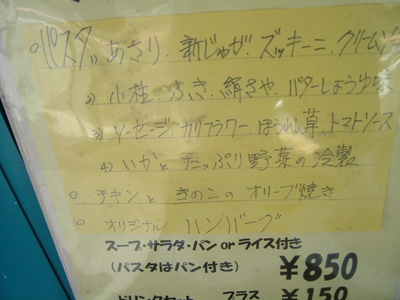 ○パスタ 1) あさり、新じゃが、ズッキーニ、クリームソー
2) 小柱、ふき、絹さや、バターしょうゆ味
3) ソーセージ、カリフラワー、ほうれん草、トマトソース
4) いかとたっぷり野菜の冷製
○ チキンときのこのオリーブ焼き
○ オリジナルハンバーグ
スープ・サラダ・パン or ライス付き
(パスタはパン付き) ¥850
ドリンクセット プラス ¥150